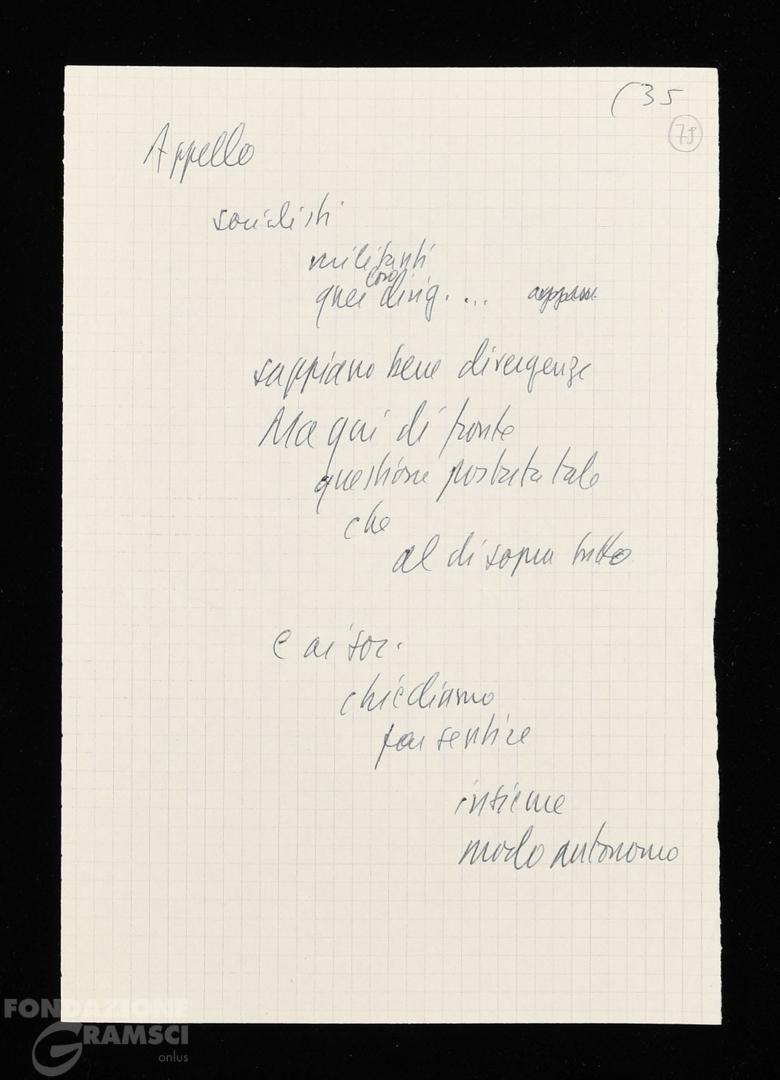 (35
79
Appello
socialisti
militanti
loro
quei dirig. ...
sappiano bene divergenze
Ma qui di fronte
questione portata tale
che
al di sopra tutto
E ai soc.
chiediamo
far sentire
insieme
modo autonomo
FONDAZIONE
GRAMSCI
onlus